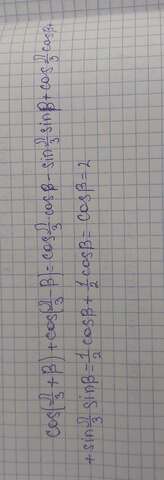 cos(π/3 + β) + cos(π/3 - β) = cos π/3 cos β - sin π/3 sin β + cos π/3 cos β +
+ sin π/3 sin β = 1/2 cos β + 1/2 cos β = cos β = 2